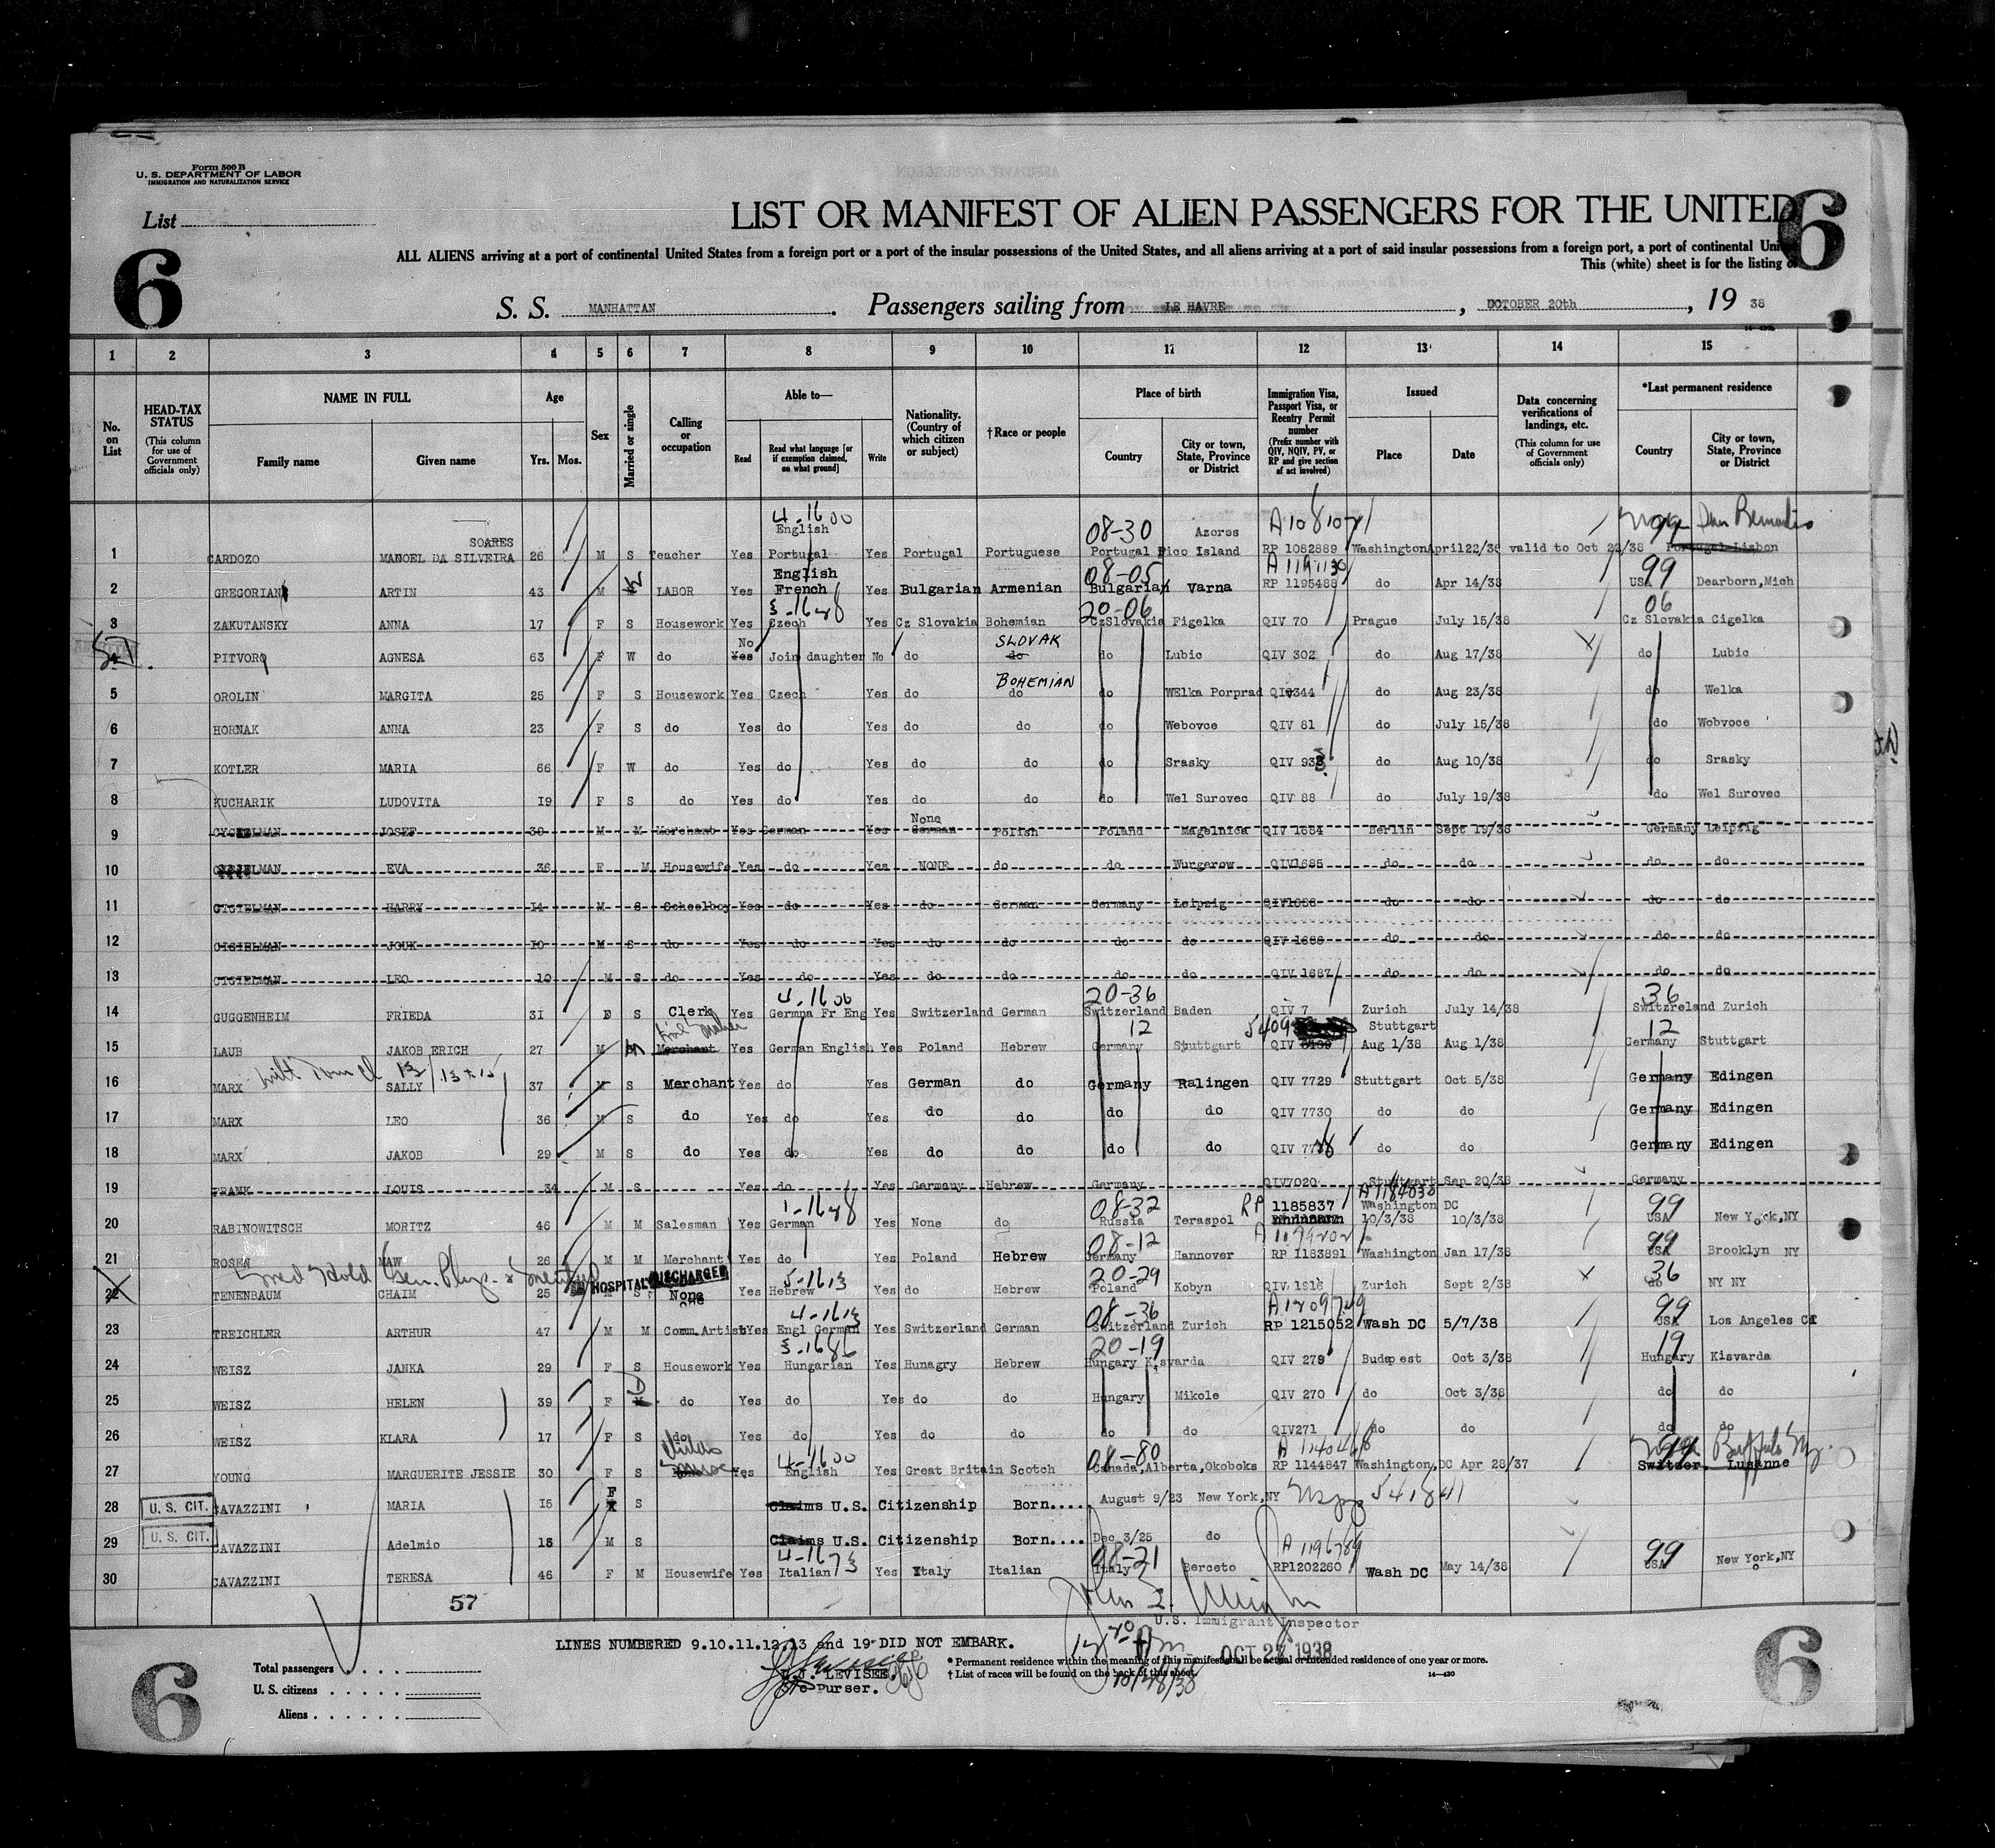 Form 500 B
U. S. DEPARTMENT OF LABOR
IMMIGRATION AND NATURALIZATION SERVICE
List
6
LIST OR MANIFEST OF ALIEN PASSENGERS FOR THE UNITED
6
ALL ALIENS arriving at a port of continental United States from a foreign port or a port of the insular possessions of the United States, and all aliens arriving at a port of said insular possessions from a foreign port, a port of continental
This (white) sheet is for the listing
S. S. MANHATTAN. Passengers sailing from LE HAVRE, OCTOBER 20th, 19 38
1 2 3 4 5 6 7 8 9 10 11 12 13 14 15
No. on List
HEAD-TAX STATUS (This column for use of Government officials only)
NAME IN FULL Family name Given name
Age Yrs. Mos.
Sex
Married or single
Calling or occupation
Able to— Read Read what language [or if exemption claimed, on what ground] Write
Nationality. (Country of which citizen or subject)
†Race or people
Place of birth Country City or town, State, Province or District
Immigration Visa, Passport Visa, or Reentry Permit number (Prefix number with QIV, NQIV, PV, or RP and give section of act involved)
Issued Place Date
Data concerning verifications of landings, etc. (This column for use of Government officials only)
*Last permanent residence Country City or town, State, Province or District
4-1600 08-30 A1081071 99 San Bernardino
SOARES English Azores
1 CARDOZO MANOEL DA SILVEIRA 26 M S Teacher Yes Portugal Yes Portugal Portuguese Portugal Pico Island RP 1082889 Washington April22/38 valid to Oct 22/38 Portugal Lisbon
English 08-05 99
2 GREGORIAN ARTIN 43 M LABOR Yes French Yes Bulgarian Armenian Bulgarian Varna RP 1195488 do Apr 14/38 USA Dearborn,Mich
20-06 06
3 ZAKUTANSKY ANNA 17 F S Housework Yes Czech Yes Cz Slovakia Bohemian CzSlovakia Figelka QIV 70 Prague July 15/38 Cz Slovakia Cigelka
No SLOVAK
4 PITVORQ AGNESA 63 F W do Yes Join daughter No do do do Lubic QIV 302 do Aug 17/38 do Lubic
BOHEMIAN
5 OROLIN MARGITA 25 F S Housework Yes Czech Yes do do do WElka Porprad QIV344 do Aug 23/38 do Welka
6 HORNAK ANNA 23 F S do Yes do Yes do do do Webovce QIV 81 do July 15/38 do Wobvoce
7 KOTLER MARIA 66 F W do Yes do Yes do do do Srasky QIV 933 do Aug 10/38 do Srasky
8 KUCHARIK LUDOVITA 19 F S do Yes do Yes do do do Wel Surovec QIV 88 do July 19/38 do Wel Surovec
None
9 JOSEF 39 M M Merchant Yes German Yes German Polish Poland Magelnica QIV 1684 Berlin Sept 19/38 Germany Leipzig
10 EVA 36 F M Housewife Yes do Yes NONE do do Wurgarow QIV1685 do do do do
11 CIGIELMAN HARRY 14 M S Schoolboy Yes do Yes do German Germany Leipzig QIV1686 do do do do
12 CIGIELMAN JOUK 10 M S do Yes do Yes do do do do QIV 1688 do do do do
13 CIGIELMAN LEO 10 M S do Yes do Yes do do do do QIV 1687 do do do do
4-1600 20-36 36
14 GUGGENHEIM FRIEDA 31 F S Clerk Yes Germna Fr Eng Yes Switzerland German Switzerland Baden QIV 7 Zurich July 14/38 Switzreland Zurich
12 5409 Stuttgart 12
15 LAUB JAKOB ERICH 27 M Merchant Yes German English Yes Poland Hebrew Germany Stuttgart QIV Aug 1/38 Aug 1/38 Germany Stuttgart
16 MARX SALLY 37 M S Merchant Yes do Yes German do Germany Ralingen QIV 7729 Stuttgart Oct 5/38 Germany Edingen
17 MARX LEO 36 M S do Yes do Yes do do do do QIV 7730 do do Germany Edingen
18 MARX JAKOB 29 M S do Yes do Yes do do do do QIV do do Germany Edingen
19 FRANK LOUIS 34 M S Yes do Yes Germany Hebrew Germany QIV7020 Stuttgart Sep 20/38 Germany
08-32 RP 1185837 A1184030 Washington DC 99
20 RABINOWITSCH MORITZ 46 M M Salesman Yes German Yes None do Russia Teraspol 10/3/38 10/3/38 USA New York,NY
08-12 99
21 ROSEN MAW 26 M M Merchant Yes do Yes Poland Hebrew Germany Hannover RP 1183891 Washington Jan 17/38 USA Brooklyn NY
HOSPITAL DISCHARGED 5-1613 20-29 36
22 TENENBAUM CHAIM 25 M S None Yes Hebrew Yes do Hebrew Poland Kobyn QIV 1916 Zurich Sept 2/38 do NY NY
4-1613 08-36 A1209749 99
23 TREICHLER ARTHUR 47 M M Comm.Artist Yes Engl German Yes Switzerland German Switzerland Zurich RP 1215052 Wash DC 5/7/38 USA Los Angeles
20-19 19
24 WEISZ JANKA 29 F S Housework Yes Hungarian Yes Hunagry Hebrew Hungary K.svarda QIV 279 Budapest Oct 3/38 Hungary Kisvarda
25 WEISZ HELEN 39 F D do Yes do Yes do do Hungary Mikole QIV 270 do Oct 3/38 do do
26 WEISZ KLARA 17 F S do Yes do Yes do do do do QIV271 do do do do
4-1600 08-80 A 1140468 99 Buffalo Ny.
27 YOUNG MARGUERITE JESSIE 30 F S Nurse Yes English Yes Great Britain Scotch Canada,Alberta,Okoboks RP 1144847 Washington,DC Apr 28/37 Switzer. Lusanne
28 U. S. CIT. CAVAZZINI MARIA 15 F S Claims U.S. Citizenship Born.... August 9/23 New York,NY 541841
29 U. S. CIT. CAVAZZINI Adelmio 13 M S Claims U.S. Citizenship Born.... Dec 3/25 do
4-1673 08-21 A 1196789 99
30 CAVAZZINI TERESA 46 F M Housewife Yes Italian Yes Italy Italian Italy Berceto RP1202260 Wash DC May 14/38 USA New York,NY
57
U.S. Immigrant Inspector
LINES NUMBERED 9.10.11.12.13 and 19 DID NOT EMBARK.
OCT 27 1938
Total passengers
U. S. citizens
Aliens
J. LEVISEE.
Purser.
* Permanent residence within the meaning of this manifest shall be actual or intended residence of one year or more.
† List of races will be found on the back of this sheet.
14—430
10/28/38
6
6